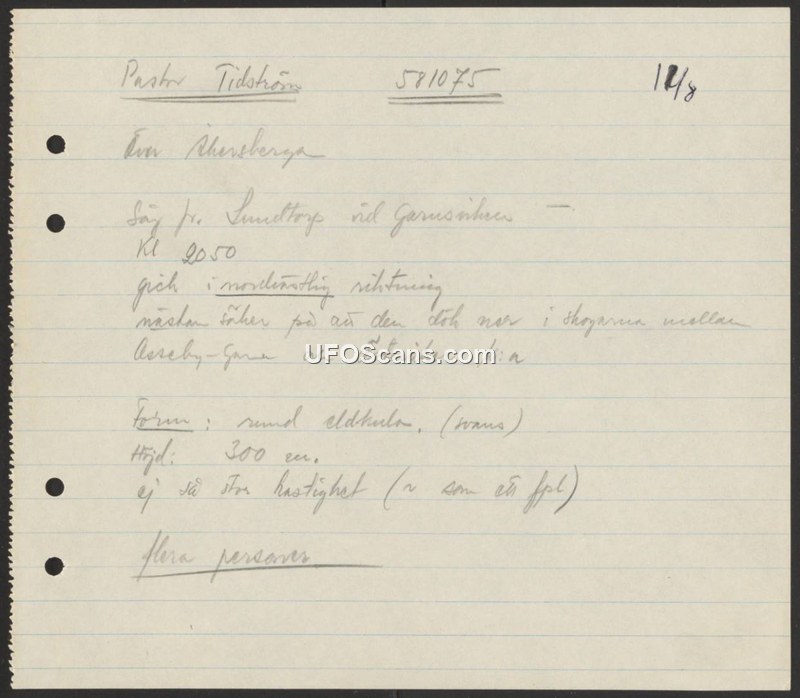 Pastor Tidström 581075 11/8
Över Åkersberga
Såg fr. Lundtorp vid Garnsviken —
Kl 2050
gick i nordvästlig riktning
nästan säker på att den dök ner i skogarna mellan
Asseby-Garn :a
UFOScans.com
Form: rund eldkula. (svans)
Höjd: 300 m.
ej så stor hastighet (~ som ett fpl)
flera personer